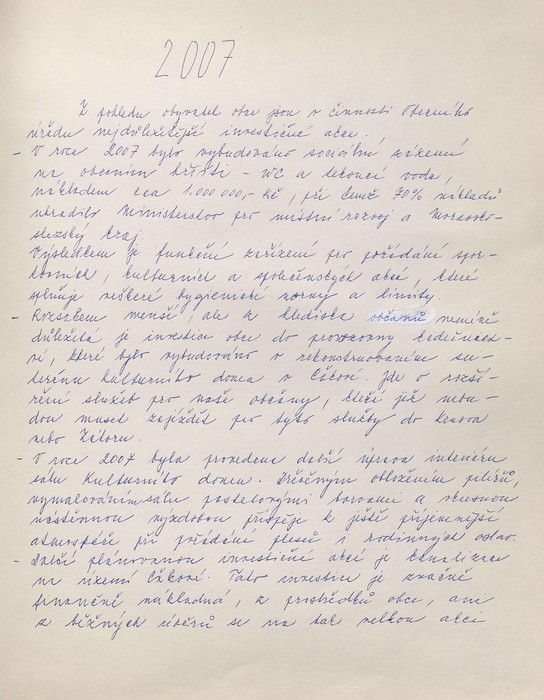 2007
Z pohledu obyvatel obce jsou v činnosti Obecního
úřadu nejdůležitější investiční akce.
- V roce 2007 bylo vybudováno sociální zázemí
na obecním hřišti - WC a tekoucí voda,
nákladem cca 1.000.000,- Kč, při čemž 70% nákladů
uhradilo Ministerstvo pro místní rozvoj a Moravsko-
slezský kraj.
Výsledkem je funkční zařízení pro pořádání spor-
tovních, kulturních a společenských akcí, které
splňuje veškeré hygienické normy a limity.
- Rozsahem menší, ale z hlediska občanů neméně
důležitá je investice obce do provozovny kadeřnict-
ví, které bylo vybudováno v rekonstruovaném su-
terénu kulturního domu v Čákové. Jde o rozší-
ření služeb pro naše občany, kteří již nebu-
dou muset zajíždět pro tyto služby do Krnova
nebo Zátoru.
- V roce 2007 byla provedena další úprava interiéru
sálu Kulturního domu. Dřevěným obložením pilířů,
vymalováním sálu pastelovými barvami a vkusnou
nástěnnou výzdobou přispěje k ještě příjemnější
atmosféře při pořádání plesů i rodinných oslav.
- Další plánovanou investiční akcí je kanalizace
na území Čákové. Tato investice je značně
finančně nákladná, z prostředků obce, ani
z běžných úvěrů se na tak velkou akci